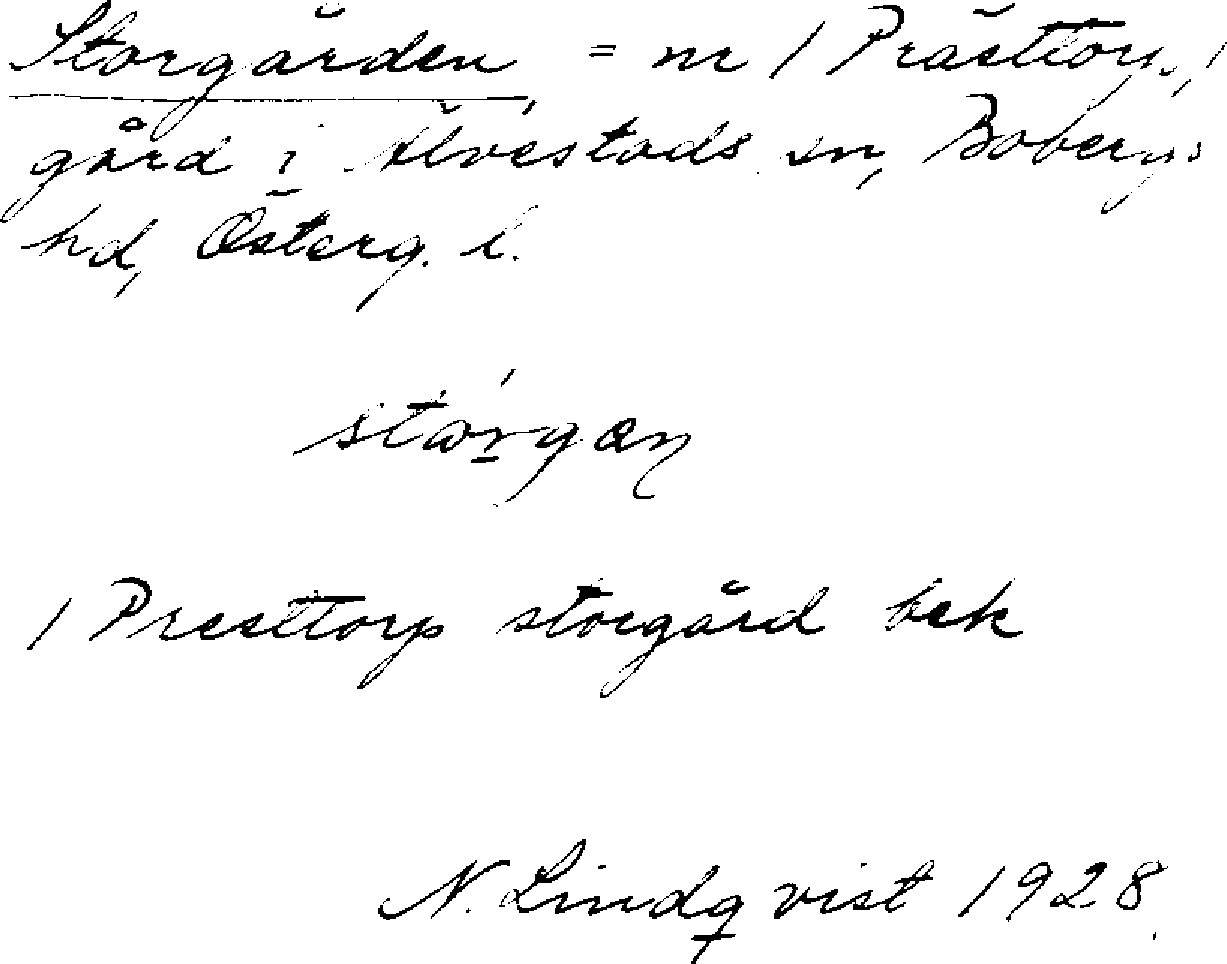 Storgården = nr 1 Prästtorp,
gård i Älvestads sn, Bobergs
hd, Österg. l.
1 Presttorp storgård bek
N. Lindqvist 1928.